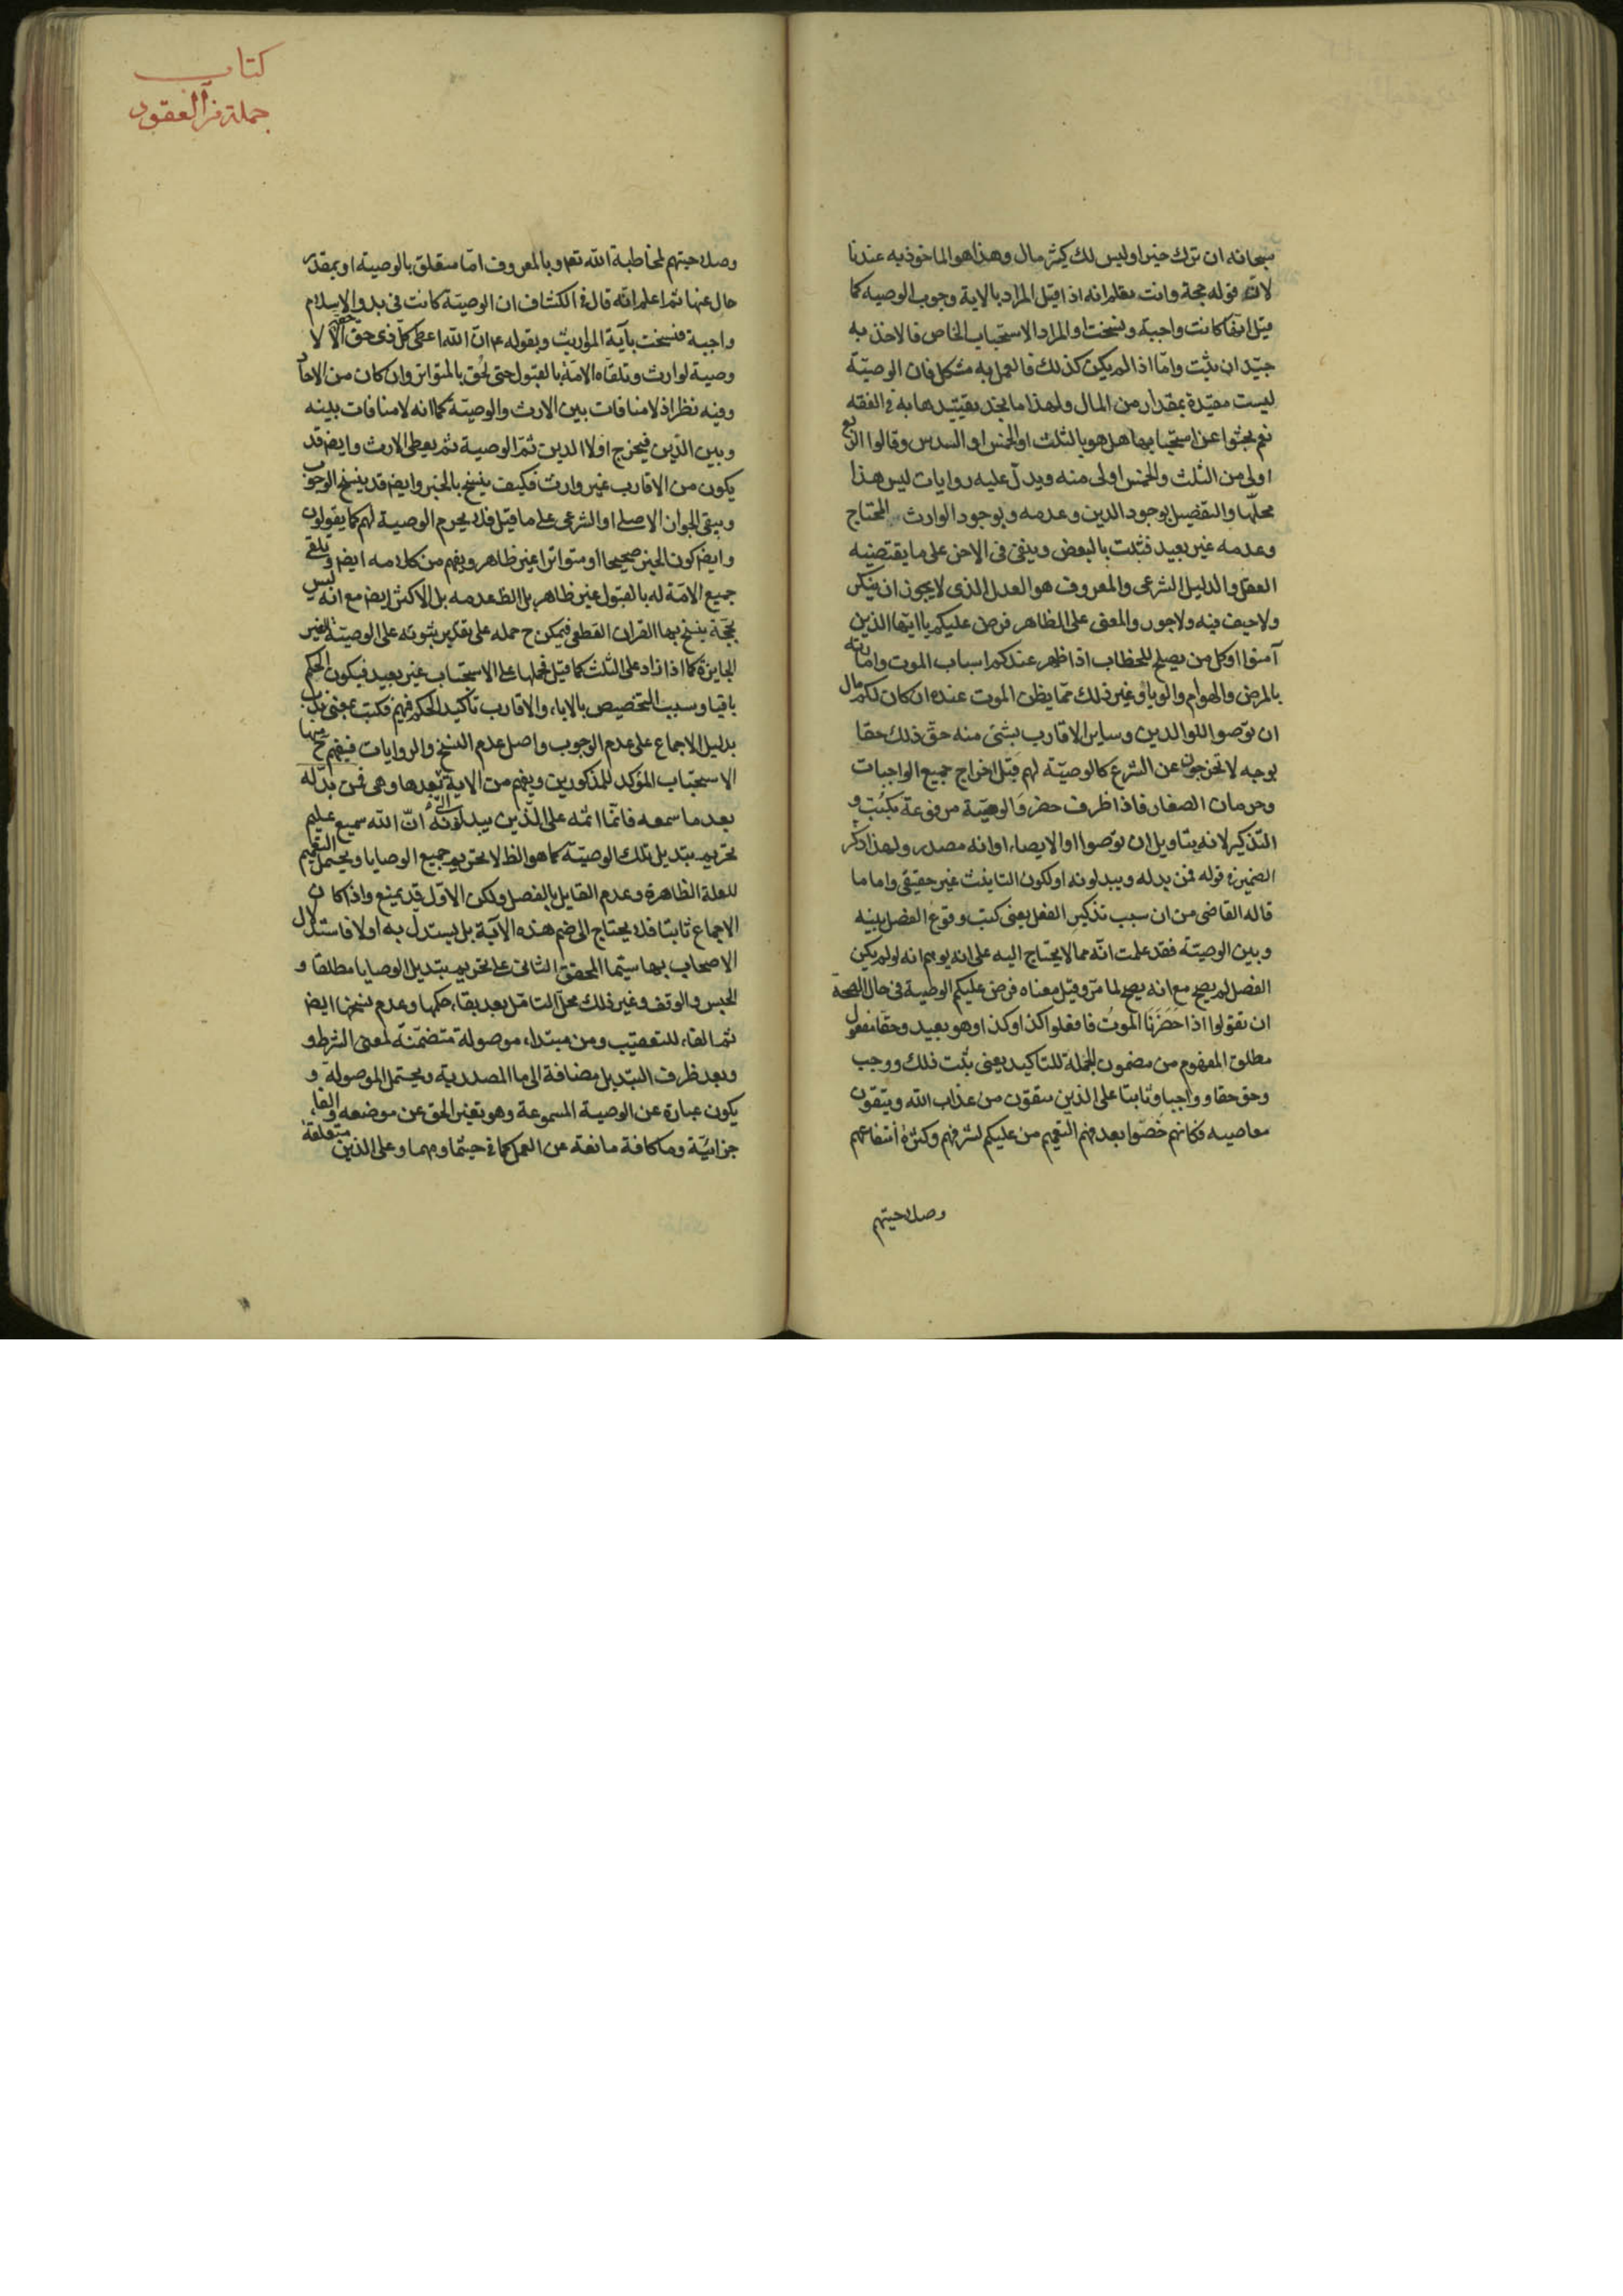 سبحانه ان ترك خيرا وليس لك كثير مال وهذا هو الماخوذ به عندنا
لان قوله حجة وانت تعلم انه اذا قيل المراد بالاية وجوب الوصية كما
قيل انها كانت واجبة ونسخت او المراد الاستحباب الخاص فالاخذ به
جيد ان ثبت واما اذا لم يكن كذلك فالعمل به مشكل فان الوصية
ليست مقيدة بمقدار من المال ولهذا ما نجد تقييدها به في الفقه
نعم بحثوا عن استحبابها هل هو بالثلث او الخمس او السدس وقالوا الربع
اولى من الثلث والخمس اولى منه ويدل عليه روايات ليس هذا
محلها والتفصيل بوجود الدين وعدمه وبوجود الوارث المحتاج
وعدمه غير بعيد فتثبت بالبعض وينفى فى الاخر على ما يقتضيه
العقل والدليل الشرعى والمعروف هو العدل الذى لا يجوز ان ينكر
ولا حيف فيه ولا جور والمعنى على الظاهر فرض عليكم يا ايها الذين
آمنوا او كل من يصلح للخطاب اذا ظهر عندكم اسباب الموت واماراته
بالمرض والهوام والوبا وغير ذلك مما يظن الموت عنده ان كان لكم مال
ان توصوا للوالدين وساير الاقارب بشئ منه حق ذلك حقا
بوجه لا تخرجون عن الشرع كالوصية لهم قبل اخراج جميع الواجبات
وحرمان الصغار فاذا ظرف حضر والوصية مرفوعة بكتب و
التذكير لانه بتاويل ان توصوا او الايصاء او انه مصدر ولهذا ذكر
الضمير في قوله فمن بدله ويبدلونه او لكون التانيث غير حقيقى واما ما
قاله القاضى من ان سبب تذكير الفعل يعنى كتب وقوع الفصل بينه
وبين الوصية فقد علمت انه مما لا يحتاج اليه على انه يوهم انه لو لم يكن
الفصل لم يصح مع انه يصح لما مر وقيل معناه فرض عليكم الوصية فى حال الصحة
ان تقولوا اذا حَضَرَنَا الموتُ فافعلوا كذا وكذا وهو بعيد وحقا مفعول
مطلق المفهوم من مضمون الجملة للتاكيد يعنى ثبت ذلك ووجب
وحق حقا وواجبا وثابتا على الذين يتقون من عذاب الله ويتقون
معاصيه فكانهم خصوا بعد فهم التعميم من عليكم لشرفهم وكثرة انتفاعهم
وصلاحيتهم
كتاب
جملة من العقود
وصلاحيتهم لمخاطبة الله تعم وبالمعروف اما متعلق بالوصية او بمقدر
حال عنها ثم اعلم انه قال فى الكشاف ان الوصية كانت فى بدو الاسلام
واجبة فنسخت بآية المواريث وبقوله ع م ان الله اعطى كل ذى حق حقه الا لا
وصية لوارث وتلقاه الامة بالقبول حتى لحق بالمتواتر وان كان من الاحاد
وفيه نظر اذ لا منافات بين الارث والوصية كما انه لا منافات بينه
وبين الدين فيخرج اولا الدين ثم الوصية ثم يعطى الارث وايضا قد
يكون من الاقارب غير وارث فكيف ينسخ بالخبر وايضا قد ينسخ الوجوب
ويبقى الجواز الاصلى او الشرعى على ما قيل فلا يحرم الوصية لهم كما يقولون
وايضا كون الخبر صحيحا او متواترا غير ظاهر ويفهم من كلامه ايضا وتلقى
جميع الامة له بالقبول غير ظاهر بل الظ عدمه بل الاكثر ايضا مع انه ليس
بحجة ينسخ بها القران القطعى فيمكن ح حمله على تقدير ثبوته على الوصية الغير
الجايزة كما اذا زاد على الثلث كما قيل فحملها على الاستحباب غير بعيد فيكون الحكم
باقيا وسبب التخصيص بالاباء والاقارب تاكيد الحكم فيهم فكتب بمعنى ندب
بدليل الاجماع على عدم الوجوب واصل عدم النسخ والروايات فيفهم ح منها
الاستحباب المؤكد للمذكورين ويفهم من الاية بعدها وهى فمن بدله
بعد ما سمعه فانما اثمه على الذين يبدلونه ان الله سميع عليم
تحريم تبديل تلك الوصية كما هو الظ لا تحريم جميع الوصايا ويحتمل التعميم
للعلة الظاهرة وعدم القايل بالفصل ولكن الاول قد يمنع واذا كان
الاجماع ثابتا فلا يحتاج الى ضم هذه الآية بل يستدل به اولا فاستدلال
الاصحاب بها سيما المحقق الثانى على تحريم تبديل الوصايا مطلقا و
الحبس والوقف وغير ذلك محل التامل بعد بقاء حكمها وعدم نسخها ايضا
ثم الفاء للتعقيب ومن مبتداء موصولة متضمنة لمعنى الشرط و
وبعد ظرف التبديل مضافة الى ما المصدرية ويحتمل الموصولة و
يكون عبارة عن الوصية المسموعة وهو تغير الحق عن موضعه والفاء
جزائية وما كافة مانعة عن العمل كما فى حيثما ومهما وعلى الذين متعلقة